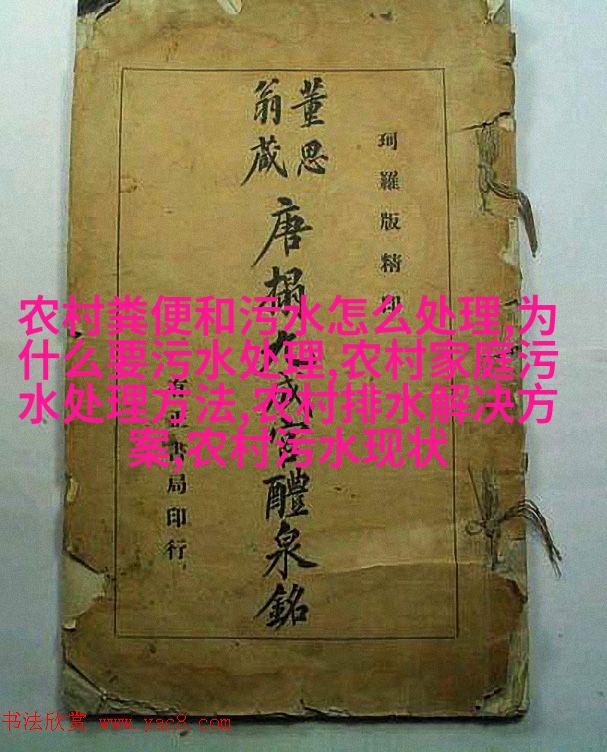 农村粪便和污水怎么处理,为
什么要污水处理,农村家庭污
水处理方法,农村排水解决方
案,农村污水现状
珂羅版精印
董思
翁藏
唐搨九成宮醴泉銘
有正書局印行
书法欣赏 www.yac8.com